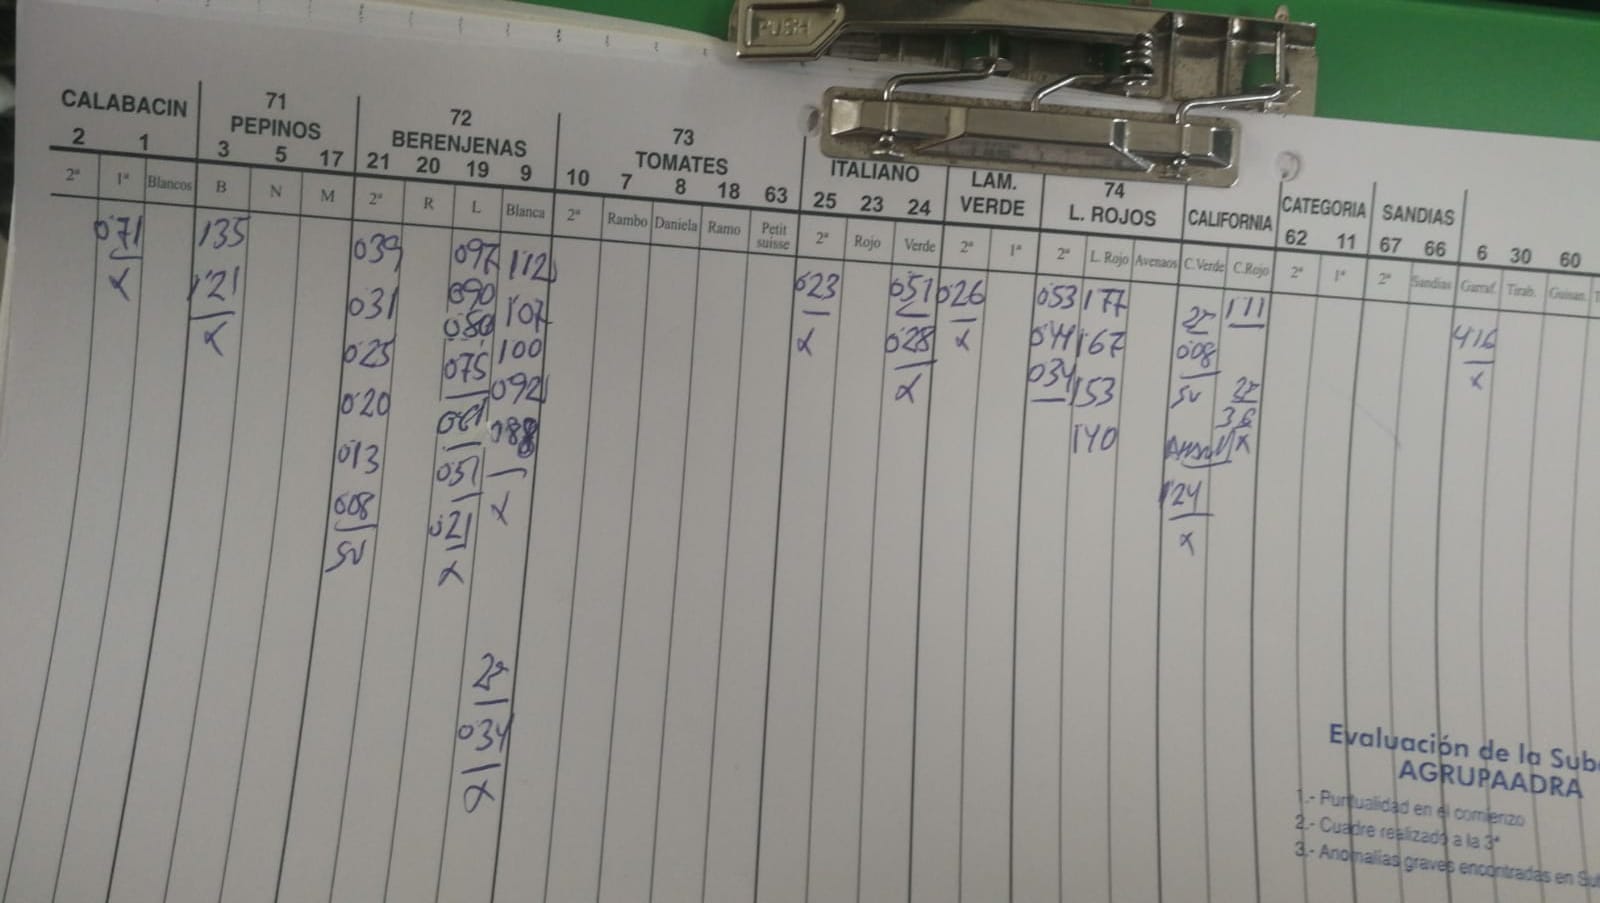 PUSH
CALABACIN
2 1
2ª 1ª Blancos
071
x
71
PEPINOS
3 5 17
B N M
135
121
x
72
BERENJENAS
21 20 19 9
2ª R L Blanca
039 097 112
031 090 107
025 080 100
020 075 092
013 061 088
008 051 x
SV 021
x
2ª
034
x
73
TOMATES
10 7 8 18 63
2ª Rambo Daniela Ramo Petit suisse
ITALIANO
25 23 24
2ª Rojo Verde
023 051
x 028
x
LAM.
VERDE
2ª 1ª
026
x
74
L. ROJOS
2ª L. Rojo Avenaos
053 177
044 167
034 153
140
CALIFORNIA
C.Verde C.Rojo
2ª 111
008
SV 2ª
36
x
124
x
CATEGORIA
62 11
2ª 1ª
SANDIAS
67 66
2ª Sandias
6 30 60
Garraf. Tirab. Guisan.
416
x
Evaluación de la Sub
AGRUPAADRA
1.- Puntualidad en el comienzo
2.- Cuadre realizado a la 3ª
3.- Anomalías graves encontradas en Su